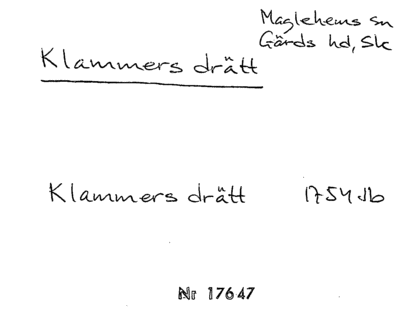 Maglehems sn
Gärds hd, Sk
Klammers drätt
Klammers drätt 1754 Jb
Nr 17647